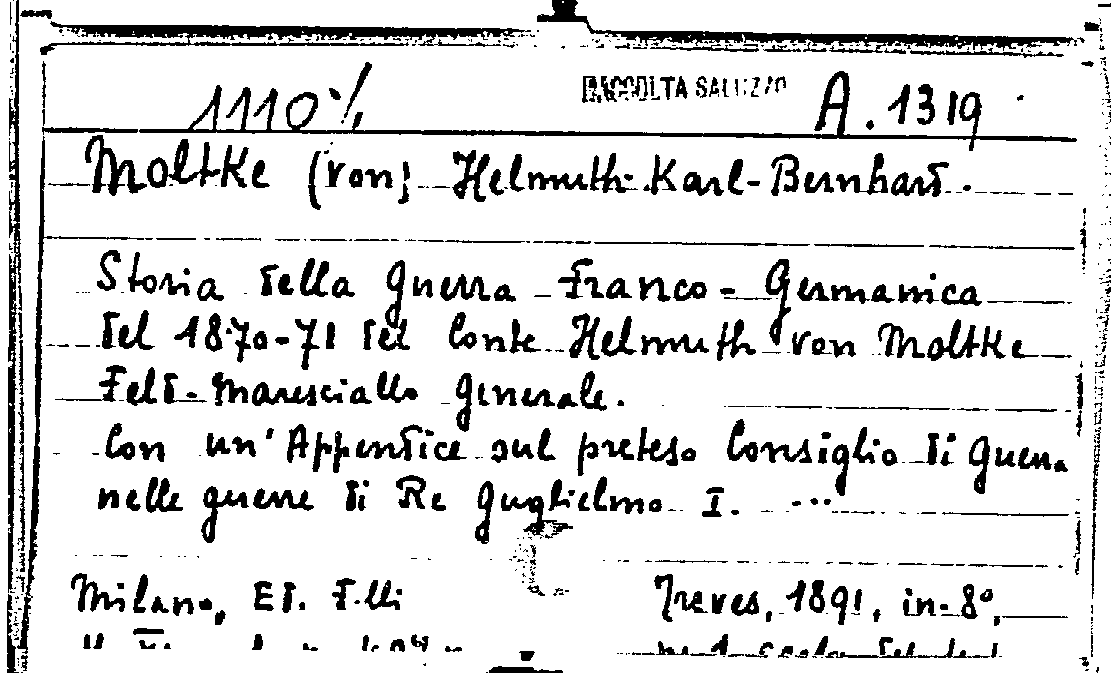 1110% RACCOLTA SALUZZO A. 1319
Moltke (von) Helmuth-Karl-Bernhard.
Storia della Guerra Franco-Germanica
del 1870-71 del Conte Helmuth von Moltke
Feld-Maresciallo Generale.
Con un' Appendice sul preteso Consiglio di Guerra
nelle guerre di Re Guglielmo I. ...
Milano, Ed. F.lli Treves, 1891, in-8°,